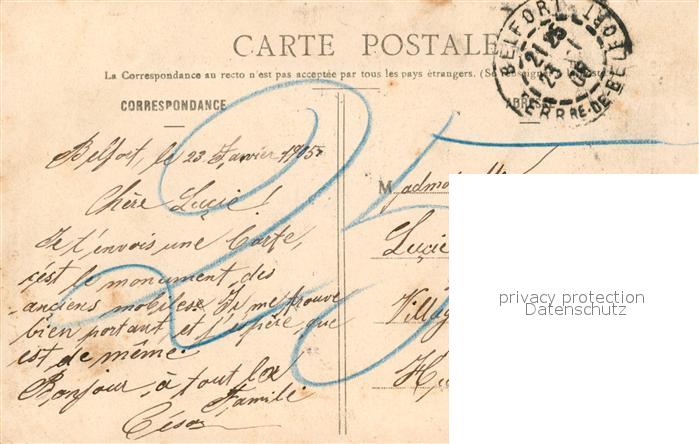 CARTE POSTALE
La Correspondance au recto n'est pas acceptée par tous les pays étrangers. (Se renseigner à la Poste)
CORRESPONDANCE
ADRESSE
BELFORT
21 25
23 -1
05
TERRRE-DE-BELFORT
25
Belfort, le 23 Janvier 1905
Chère Lucie!
Je t'envois une Carte,
c'est le monument des
anciens mobiles. Je me trouve
bien portant et j'espère, que
est de même.
Bonjour à tout la
Famile
César
Madmoiselle
Lucie
Villag
privacy protection
Datenschutz